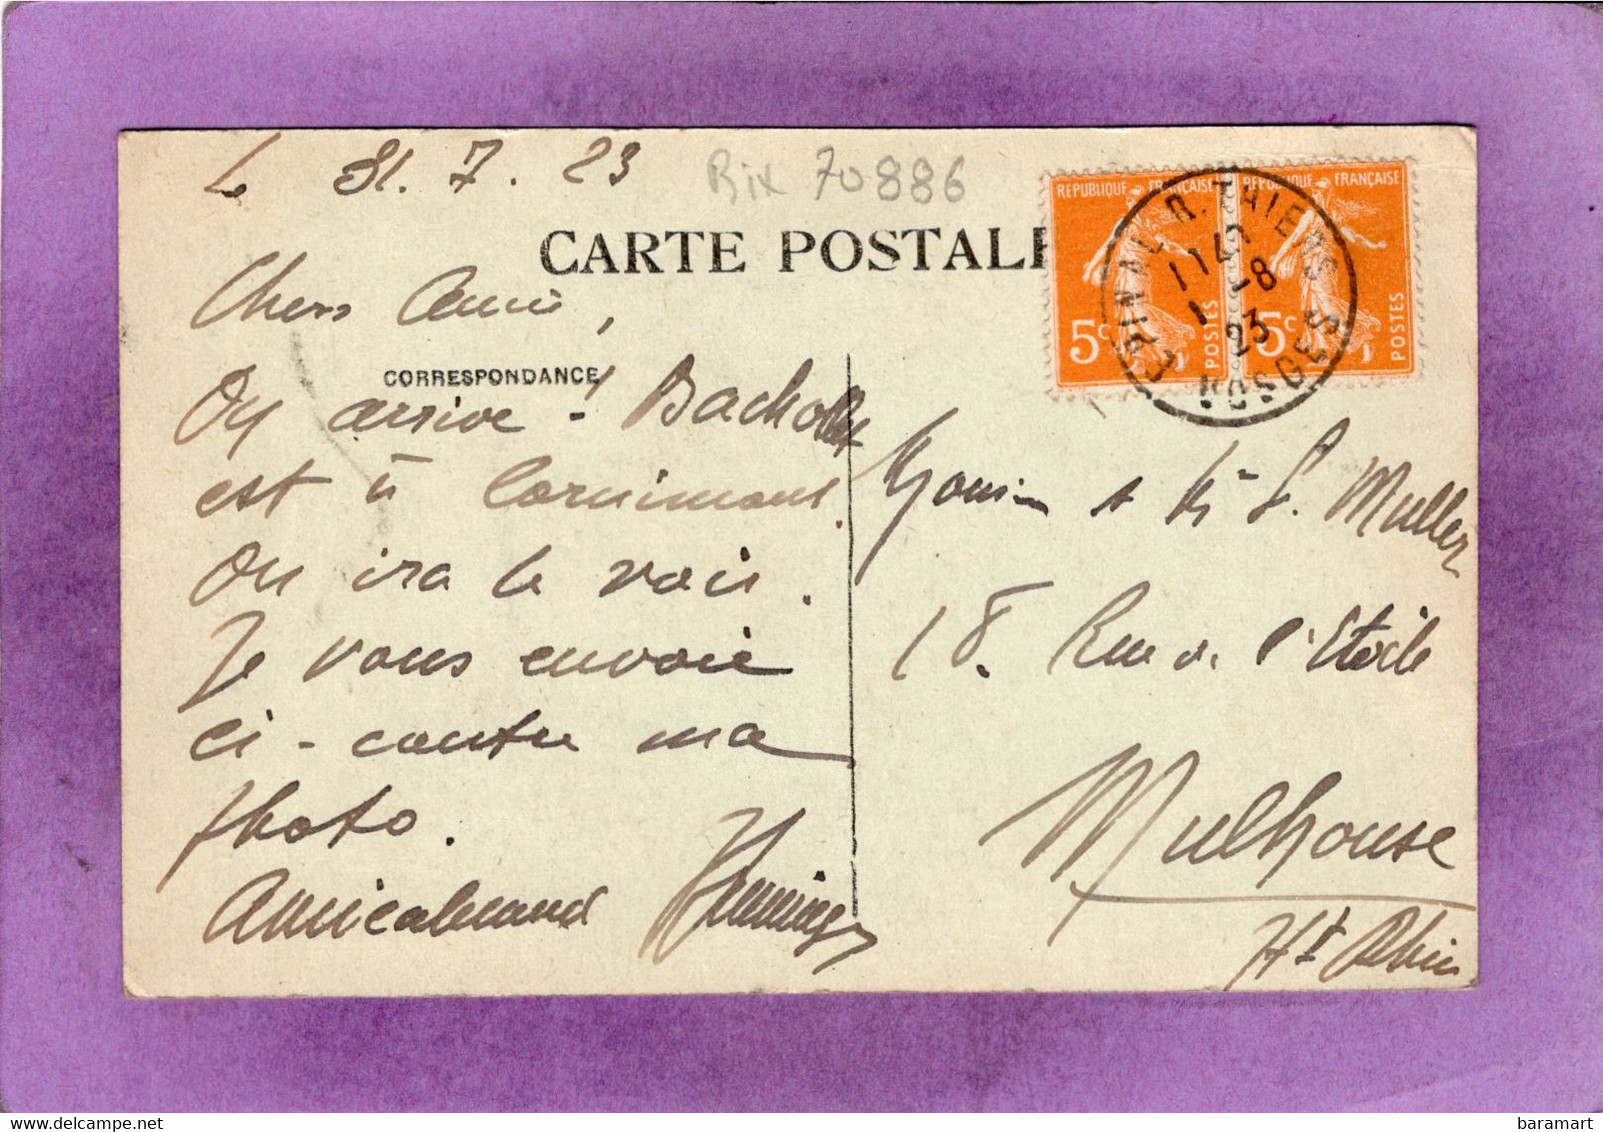 Le 31.7.23
Rix 70886
CARTE POSTALE
REPUBLIQUE FRANÇAISE
5c POSTES
REPUBLIQUE FRANÇAISE
5c POSTES
EPINAL R. THIERS
1140
1-8
23
VOSGES
Chers Amis,
CORRESPONDANCE
On arrive!
est à Cornimont.
On ira le voir.
Je vous envoie
ci-contre ma
photo.
Amicalement
L. Muller
18. Rue de l'Etoile
Mulhouse
Ht Rhin
baramart